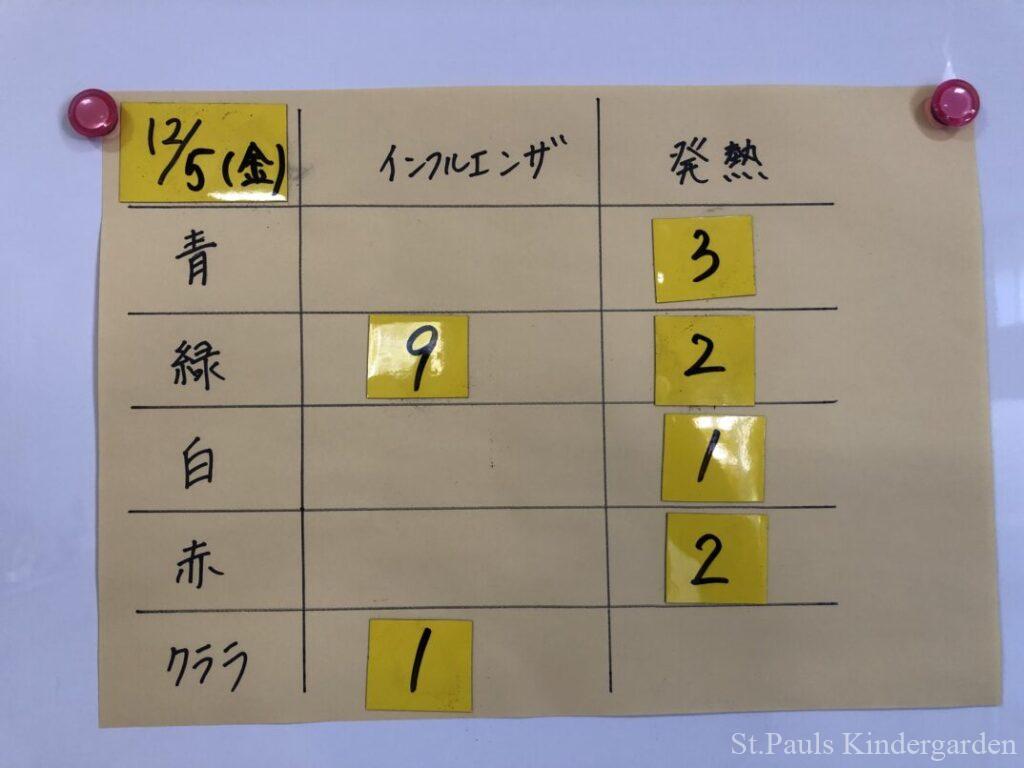 12/5(金) インフルエンザ 発熱
青 3
緑 9 2
白 1
赤 2
クララ 1
St.Pauls Kindergarden